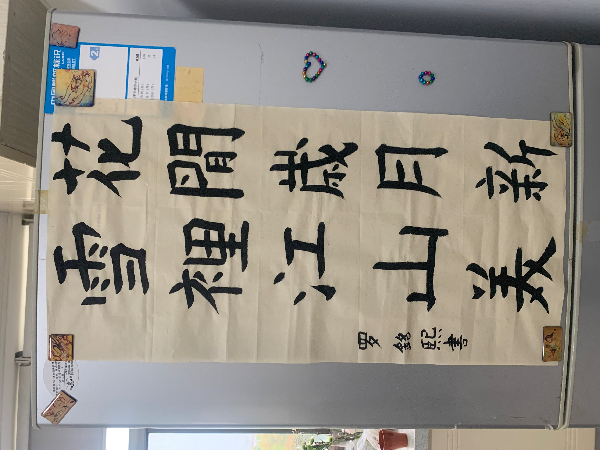 花間歲月新
雪裡江山美
罗銘熙書